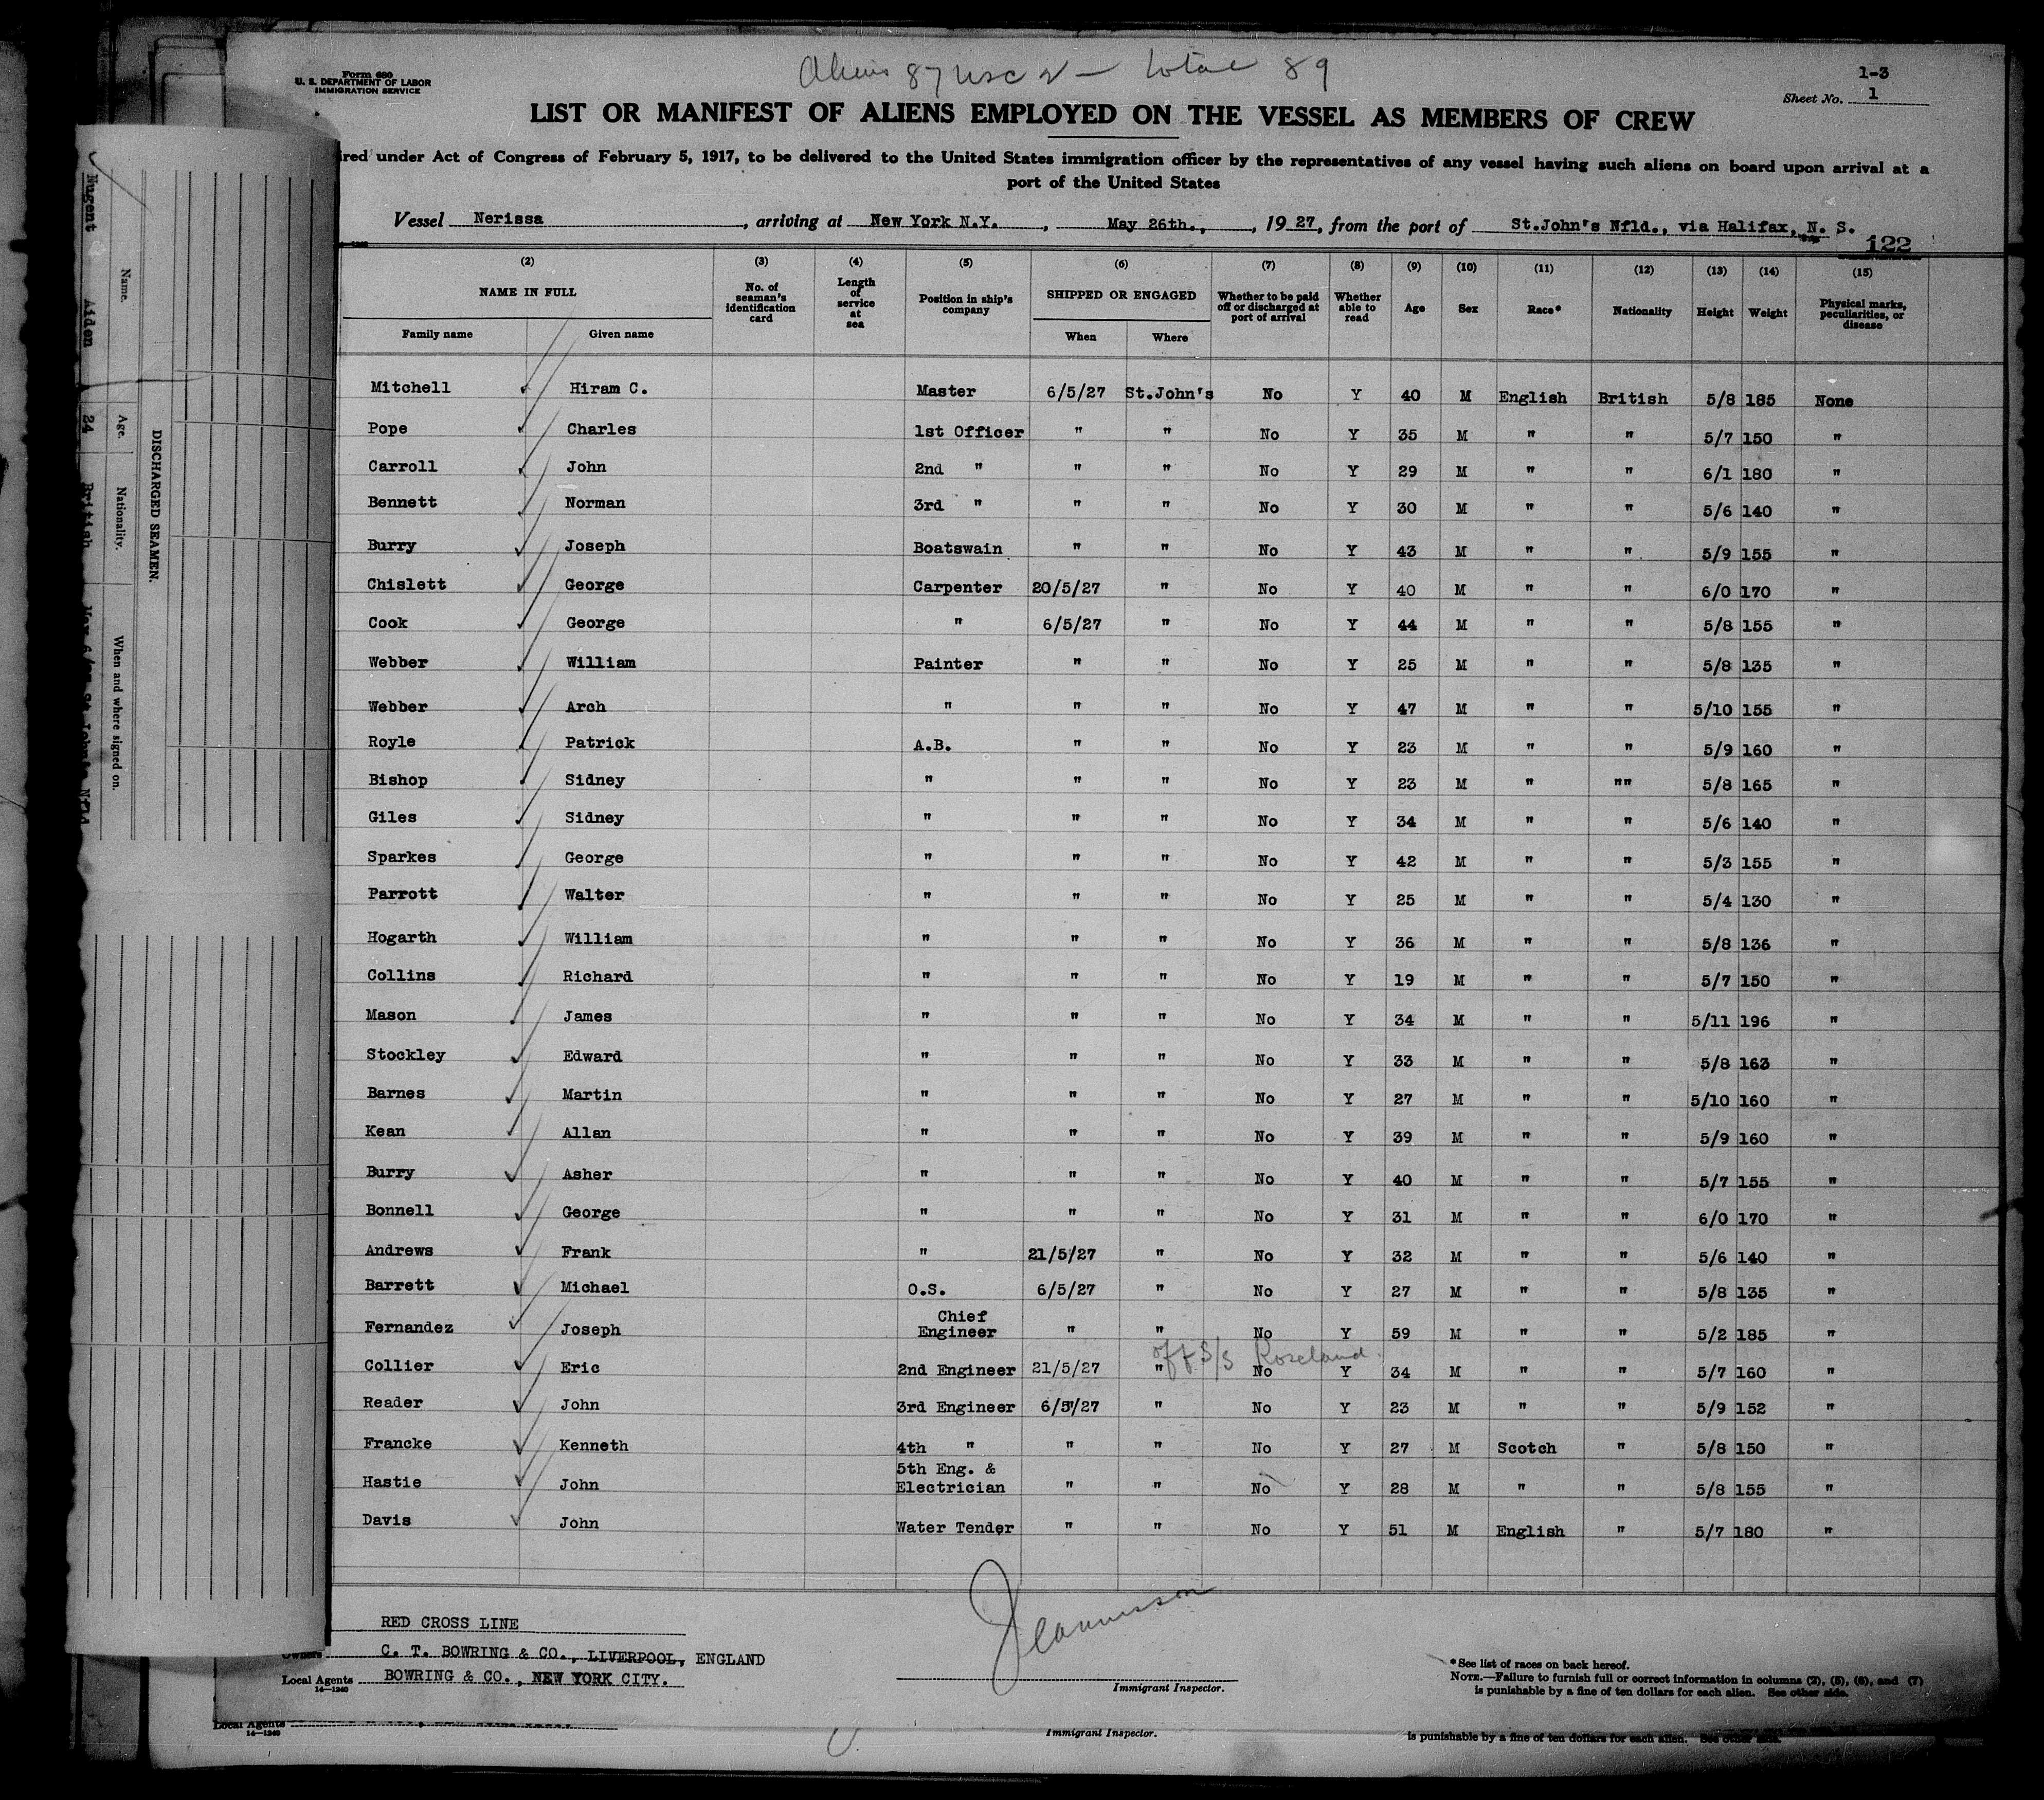 Aliens 87 USC 2 — total 89
Form 680
U. S. DEPARTMENT OF LABOR
IMMIGRATION SERVICE
1-3
Sheet No. 1
LIST OR MANIFEST OF ALIENS EMPLOYED ON THE VESSEL AS MEMBERS OF CREW
ired under Act of Congress of February 5, 1917, to be delivered to the United States immigration officer by the representatives of any vessel having such aliens on board upon arrival at a
port of the United States
Vessel Nerissa, arriving at New York N.Y., May 26th., 1927, from the port of St.John's Nfld., via Halifax, N. S.
122
(2) (3) (4) (5) (6) (7) (8) (9) (10) (11) (12) (13) (14) (15)
NAME IN FULL No. of seaman's identification card Length of service at sea Position in ship's company SHIPPED OR ENGAGED Whether to be paid off or discharged at port of arrival Whether able to read Age Sex Race* Nationality Height Weight Physical marks, peculiarities, or disease
Family name Given name When Where
Mitchell Hiram C. Master 6/5/27 St.John's No Y 40 M English British 5/8 185 None
Pope Charles 1st Officer " " No Y 35 M " " 5/7 150 "
Carroll John 2nd " " " No Y 29 M " " 6/1 180 "
Bennett Norman 3rd " " " No Y 30 M " " 5/6 140 "
Burry Joseph Boatswain " " No Y 43 M " " 5/9 155 "
Chislett George Carpenter 20/5/27 " No Y 40 M " " 6/0 170 "
Cook George " 6/5/27 " No Y 44 M " " 5/8 155 "
Webber William Painter " " No Y 25 M " " 5/8 135 "
Webber Arch " " " No Y 47 M " " 5/10 155 "
Royle Patrick A.B. " " No Y 23 M " " 5/9 160 "
Bishop Sidney " " " No Y 23 M " "" 5/8 165 "
Giles Sidney " " " No Y 34 M " " 5/6 140 "
Sparkes George " " " No Y 42 M " " 5/3 155 "
Parrott Walter " " " No Y 25 M " " 5/4 130 "
Hogarth William " " " No Y 36 M " " 5/8 136 "
Collins Richard " " " No Y 19 M " " 5/7 150 "
Mason James " " " No Y 34 M " " 5/11 196 "
Stockley Edward " " " No Y 33 M " " 5/8 163 "
Barnes Martin " " " No Y 27 M " " 5/10 160 "
Kean Allan " " " No Y 39 M " " 5/9 160 "
Burry Asher " " " No Y 40 M " " 5/7 155 "
Bonnell George " " " No Y 31 M " " 6/0 170 "
Andrews Frank " 21/5/27 " No Y 32 M " " 5/6 140 "
Barrett Michael O.S. 6/5/27 " No Y 27 M " " 5/8 135 "
Fernandez Joseph Chief Engineer " " No Y 59 M " " 5/2 185 "
off S/S Roseland.
Collier Eric 2nd Engineer 21/5/27 " No Y 34 M " " 5/7 160 "
Reader John 3rd Engineer 6/5/27 " No Y 23 M " " 5/9 152 "
Francke Kenneth 4th " " " No Y 27 M Scotch " 5/8 150 "
Hastie John 5th Eng. & Electrician " " No Y 28 M " " 5/8 155 "
Davis John Water Tender " " No Y 51 M English " 5/7 180 "
RED CROSS LINE
Owners C. T. BOWRING & CO., LIVERPOOL, ENGLAND
Local Agents BOWRING & CO., NEW YORK CITY.
14—1240
Immigrant Inspector.
*See list of races on back hereof.
NOTE.—Failure to furnish full or correct information in columns (2), (5), (6), and (7)
is punishable by a fine of ten dollars for each alien. See other side.
Local Agents
14—1240
Immigrant Inspector.
is punishable by a fine of ten dollars for each alien. See other side.
DISCHARGED SEAMEN.
Name. Age. Nationality. When and where signed on.
Nugent Aiden 24 British St. John's Nfld